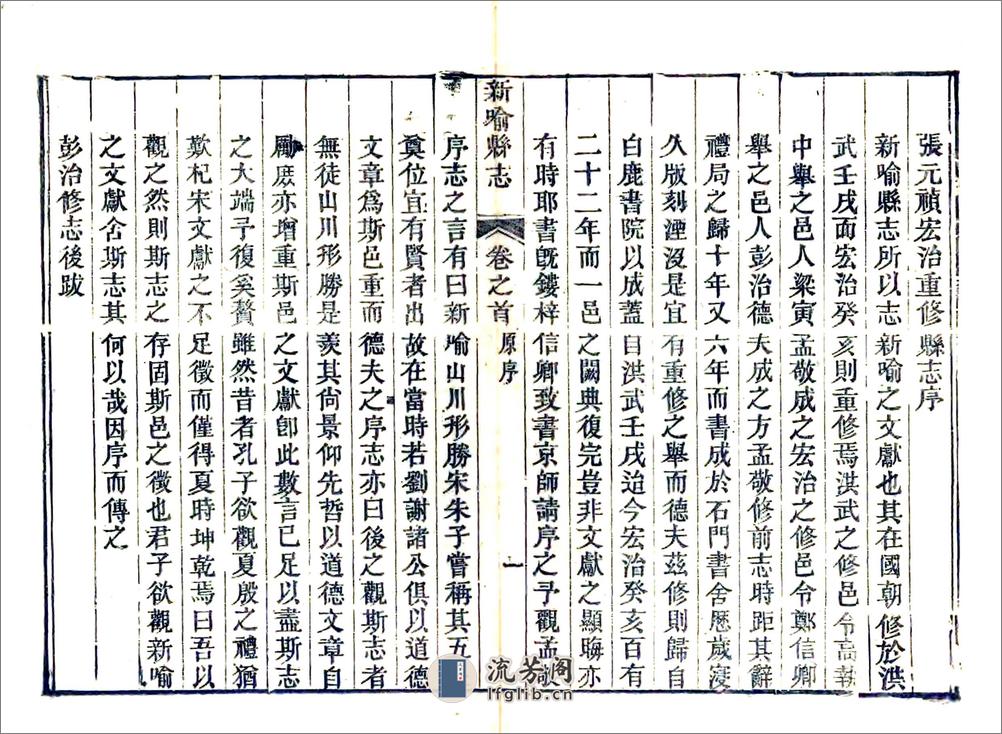 張元禎宏治重修縣志序
新喻縣志所以志新喻之文獻也其在國朝修於洪
武壬戌而宏治癸亥則重修焉洪武之修邑令高
中舉之邑人梁寅孟敬成之宏治之修邑令鄭信卿
舉之邑人彭治德夫成之方孟敬修前志時距其辭
禮局之歸十年又六年而書成於石門書舍歷歲寖
久版刻湮沒是宜有重修之舉而德夫茲修則歸自
白鹿書院以成蓋自洪武壬戌迨今宏治癸亥百有
二十二年而一邑之闕典復完豈非文獻之顯晦亦
有時耶書旣鏤梓信卿致書京師請序之予觀孟敬
新喻縣志
卷之首
原序
一
序志之言有曰新喻山川形勝宋朱子嘗稱其五
奠位宜有賢者出故在當時若劉謝諸公俱以道德
文章爲斯邑重而德夫之序志亦曰後之觀斯志者
無徒山川形勝是羨其尙景仰先哲以道德文章自
勵庶亦增重斯邑之文獻卽此數言已足以盡斯志
之大端予復奚贅雖然昔者孔子欲觀夏殷之禮猶
歎杞宋文獻之不足徵而僅得夏時坤乾焉曰吾以
觀之然則斯志之存固斯邑之徵也君子欲觀新喻
之文獻舍斯志其何以哉因序而傳之
彭治修志後跋
流芳阁
lfglib.cn